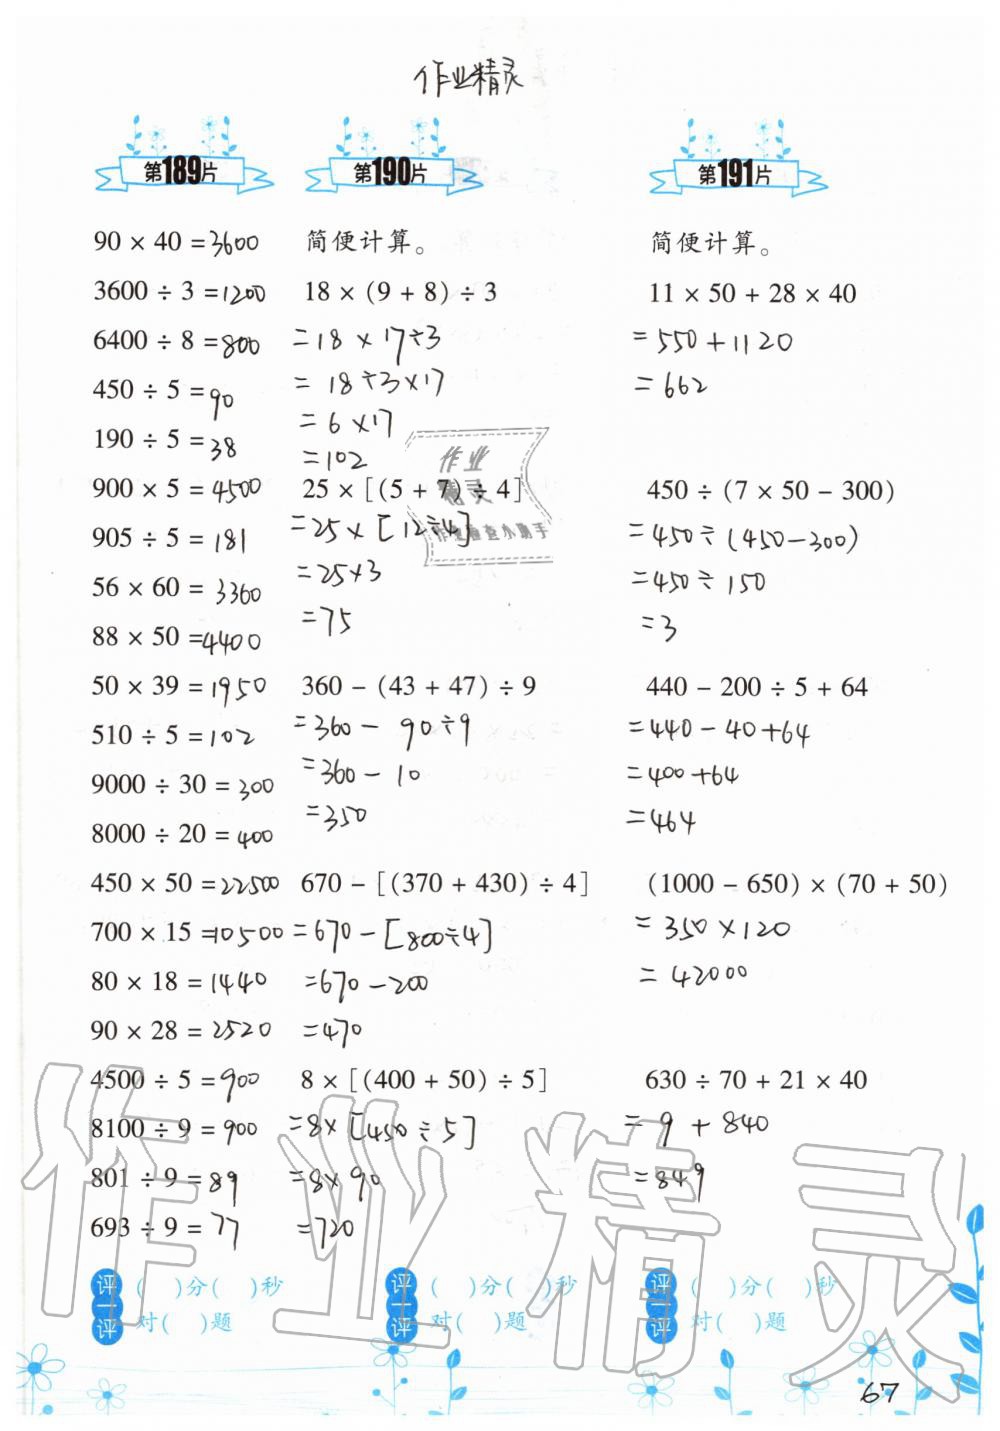 作业精灵
第189片
90 × 40 = 3600
3600 ÷ 3 = 1200
6400 ÷ 8 = 800
450 ÷ 5 = 90
190 ÷ 5 = 38
900 × 5 = 4500
905 ÷ 5 = 181
56 × 60 = 3360
88 × 50 = 4400
50 × 39 = 1950
510 ÷ 5 = 102
9000 ÷ 30 = 300
8000 ÷ 20 = 400
450 × 50 = 22500
700 × 15 = 10500
80 × 18 = 1440
90 × 28 = 2520
4500 ÷ 5 = 900
8100 ÷ 9 = 900
801 ÷ 9 = 89
693 ÷ 9 = 77
评一评
( )分( )秒
对( )题
第190片
简便计算。
18 × (9 + 8) ÷ 3
= 18 × 17 ÷ 3
= 18 ÷ 3 × 17
= 6 × 17
= 102
25 × [(5 + 7) ÷ 4]
= 25 × [12 ÷ 4]
= 25 × 3
= 75
360 - (43 + 47) ÷ 9
= 360 - 90 ÷ 9
= 360 - 10
= 350
670 - [(370 + 430) ÷ 4]
= 670 - [800 ÷ 4]
= 670 - 200
= 470
8 × [(400 + 50) ÷ 5]
= 8 × [450 ÷ 5]
= 8 × 90
= 720
评一评
( )分( )秒
对( )题
第191片
简便计算。
11 × 50 + 28 × 40
= 550 + 1120
= 662
450 ÷ (7 × 50 - 300)
= 450 ÷ (450 - 300)
= 450 ÷ 150
= 3
440 - 200 ÷ 5 + 64
= 440 - 40 + 64
= 400 + 64
= 464
(1000 - 650) × (70 + 50)
= 350 × 120
= 42000
630 ÷ 70 + 21 × 40
= 9 + 840
= 849
评一评
( )分( )秒
对( )题
67
作业
精灵
作业检查小助手
作业精灵